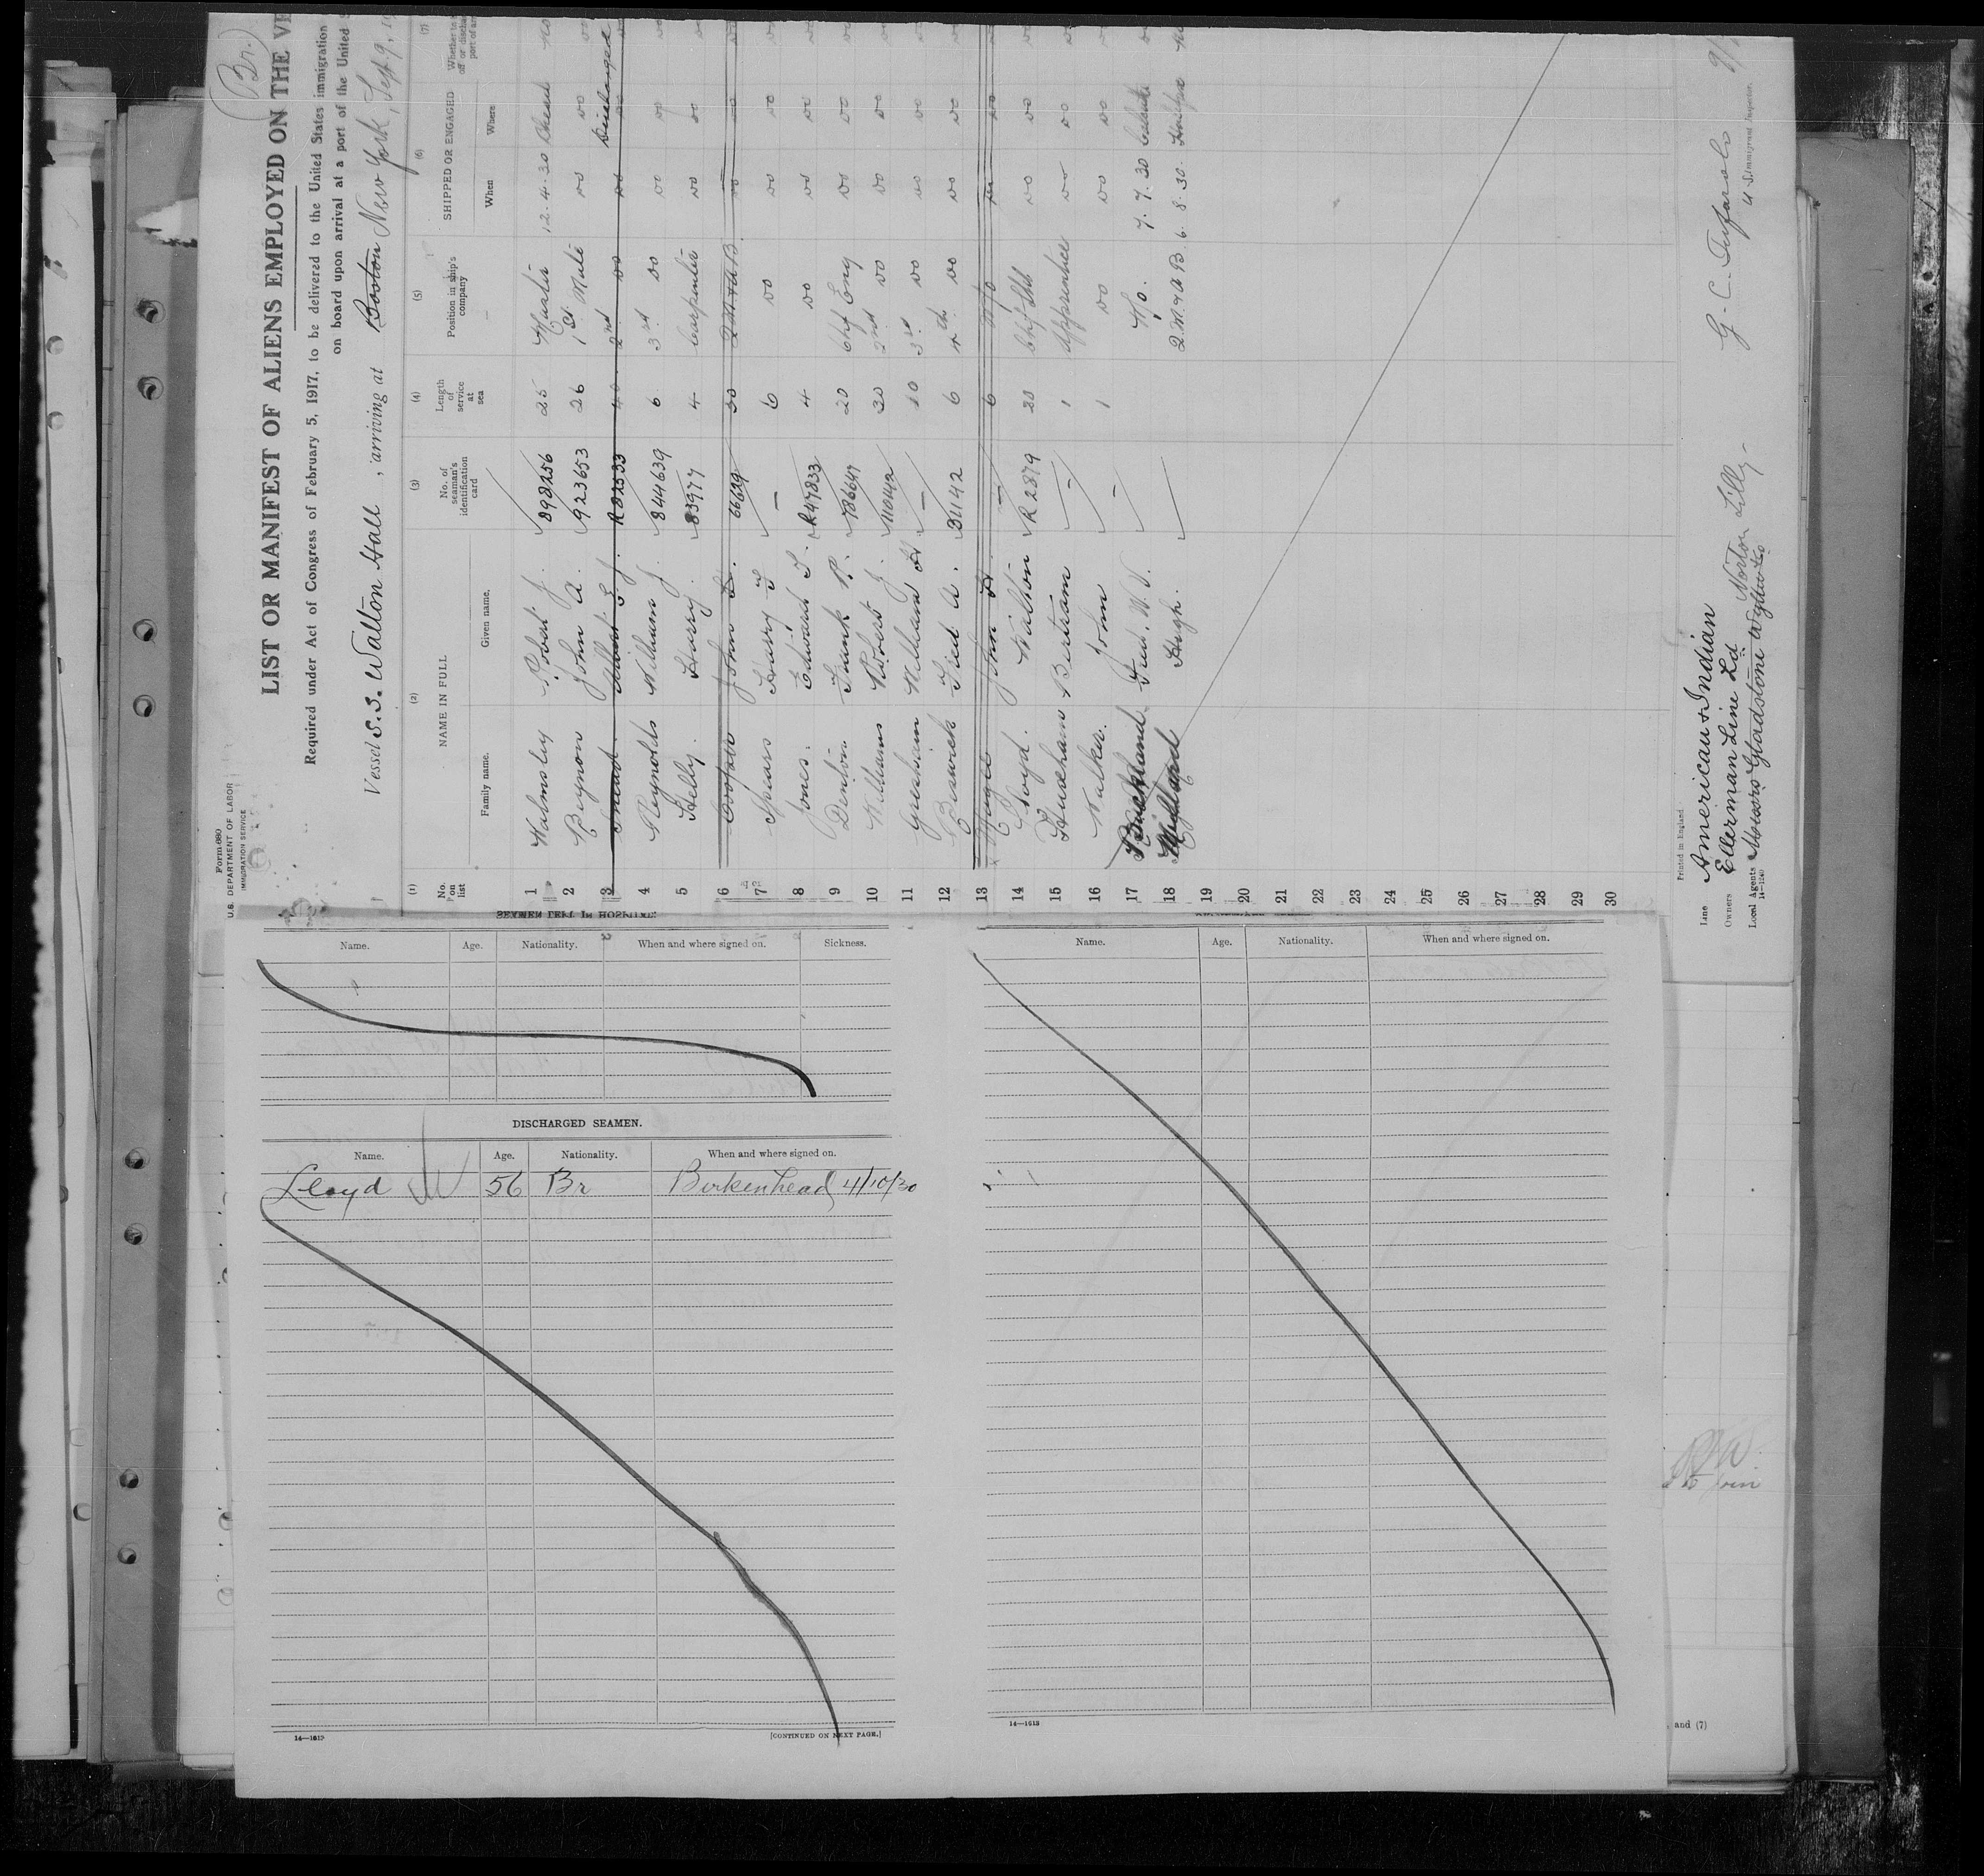 Form 680
U.S. DEPARTMENT OF LABOR
IMMIGRATION SERVICE
(Br.)
LIST OR MANIFEST OF ALIENS EMPLOYED ON THE VE
Required under Act of Congress of February 5, 1917, to be delivered to the United States immigration
on board upon arrival at a port of the United S
Vessel S.S. Walton Hall, arriving at Boston New York, Sept 9, 19
(1) (2) (3) (4) (5) (6) (7)
No. on list
NAME IN FULL
Family name. Given name.
No. of seaman's identification card
Length of service at sea
Position in ship's company
SHIPPED OR ENGAGED
When Where
1 Walmsley Robert J. 898256 25 Master 12.4.30
2 Beynon John A. 923653 26 1st Mate do do
3 R82533 40 2nd do do Discharged
4 Reynolds William J. 844639 6 3rd do do do
5 Kelly Harry. 83977 4 Carpenter do do
6 Cooper John 66629 30 do do
7 Spears Harry — 6 do do do
8 Jones. Edward T. R47833 4 do do do
9 Denton Frank R. 786647 20 Chf Eng do do
10 Williams Robert J. 30 2nd do do do
11 Greehan William H — 10 3rd do do do
12 Beswick Fred A. 31142 6 4th do do do
13 Magee John H. — 6 W/o do do
14 Lloyd. Walton R2879 20 do do
15 Bertram — 1 Apprentice do do
16 Walker. John — 1 do do do
17 Buckland Fred. W. V. W/o. 7.7.30 Calcutta
18 Millard Hugh. 6.8.30. Halifax
19
20
21
22
23
24
25
26
27
28
29
30
Printed in England
Line American & Indian
Owners Ellerman Line Ld
Local Agents Messrs Gladstone Wyllie & Co Norton Lilly
14—1240
G. C. Tufarolo
U.S. Immigrant Inspector.
SEAMEN LEFT IN HOSPITAL
Name. Age. Nationality. When and where signed on. Sickness.
DISCHARGED SEAMEN.
Name. Age. Nationality. When and where signed on.
Lloyd W 56 Br Birkenhead 4/10/30
14—1613
[CONTINUED ON NEXT PAGE.]
Name. Age. Nationality. When and where signed on.
14—1613
to join
, and (7)